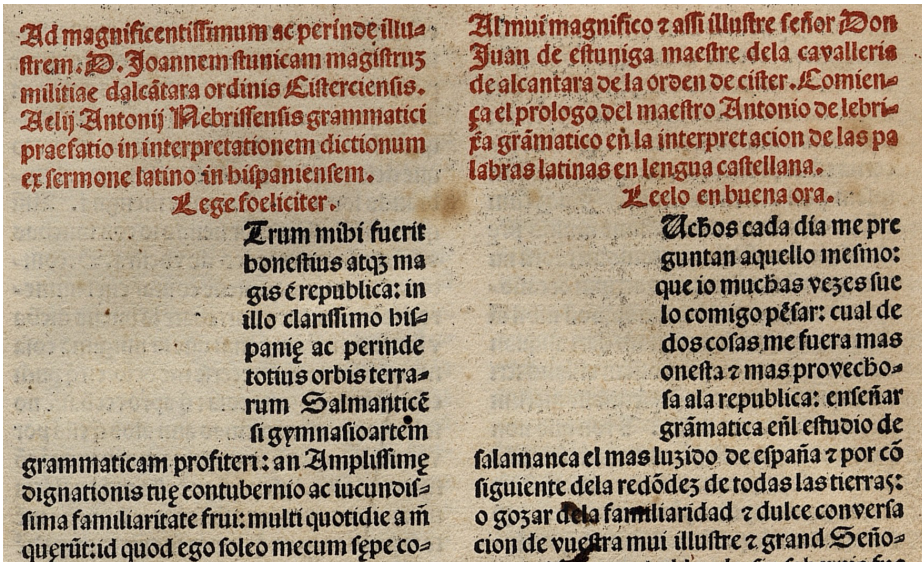 Ad magnificentissimum ac perinde illu-
strem. D. Joannem stunicam magistruꝫ
militiae dalcãtara ordinis Cisterciensis.
Aelij Antonij Nebrissensis grammatici
praefatio in interpretationem dictionum
ex sermone latino in hispaniensem.
Lege foeliciter.
Trum mihi fuerit
honestius atqꝫ ma
gis ẽ republica: in
illo clarissimo his-
panię ac perinde
totius orbis terra-
rum Salmanticẽ
si gymnasioartem
grammaticam profiteri: an Amplissimę
dignationis tuę contubernio ac iucundis-
sima familiaritate frui: multi quotidie a m̃
quęrũt: id quod ego soleo mecum sępe co-
Al mui magnifico ⁊ assi illustre señor Don
Juan de estuniga maestre dela cavalleria
de alcantara de la orden de cister. Comien-
ça el prologo del maestro Antonio de lebri-
xa grãmatico eñ la interpretacion de las pa
labras latinas en lengua castellana.
Leelo en buena ora.
Uchos cada dia me pre
guntan aquello mesmo:
que io muchas vezes sue
lo comigo pẽsar: cual de
dos cosas me fuera mas
onesta ⁊ mas provecho-
sa ala republica: enseñar
grãmatica eñl estudio de
salamanca el mas luzido de españa ⁊ por cõ
siguiente dela redõdez de todas las tierras:
o gozar dela familiaridad ⁊ dulce conversa
cion de vuestra mui illustre ⁊ grand Seño-